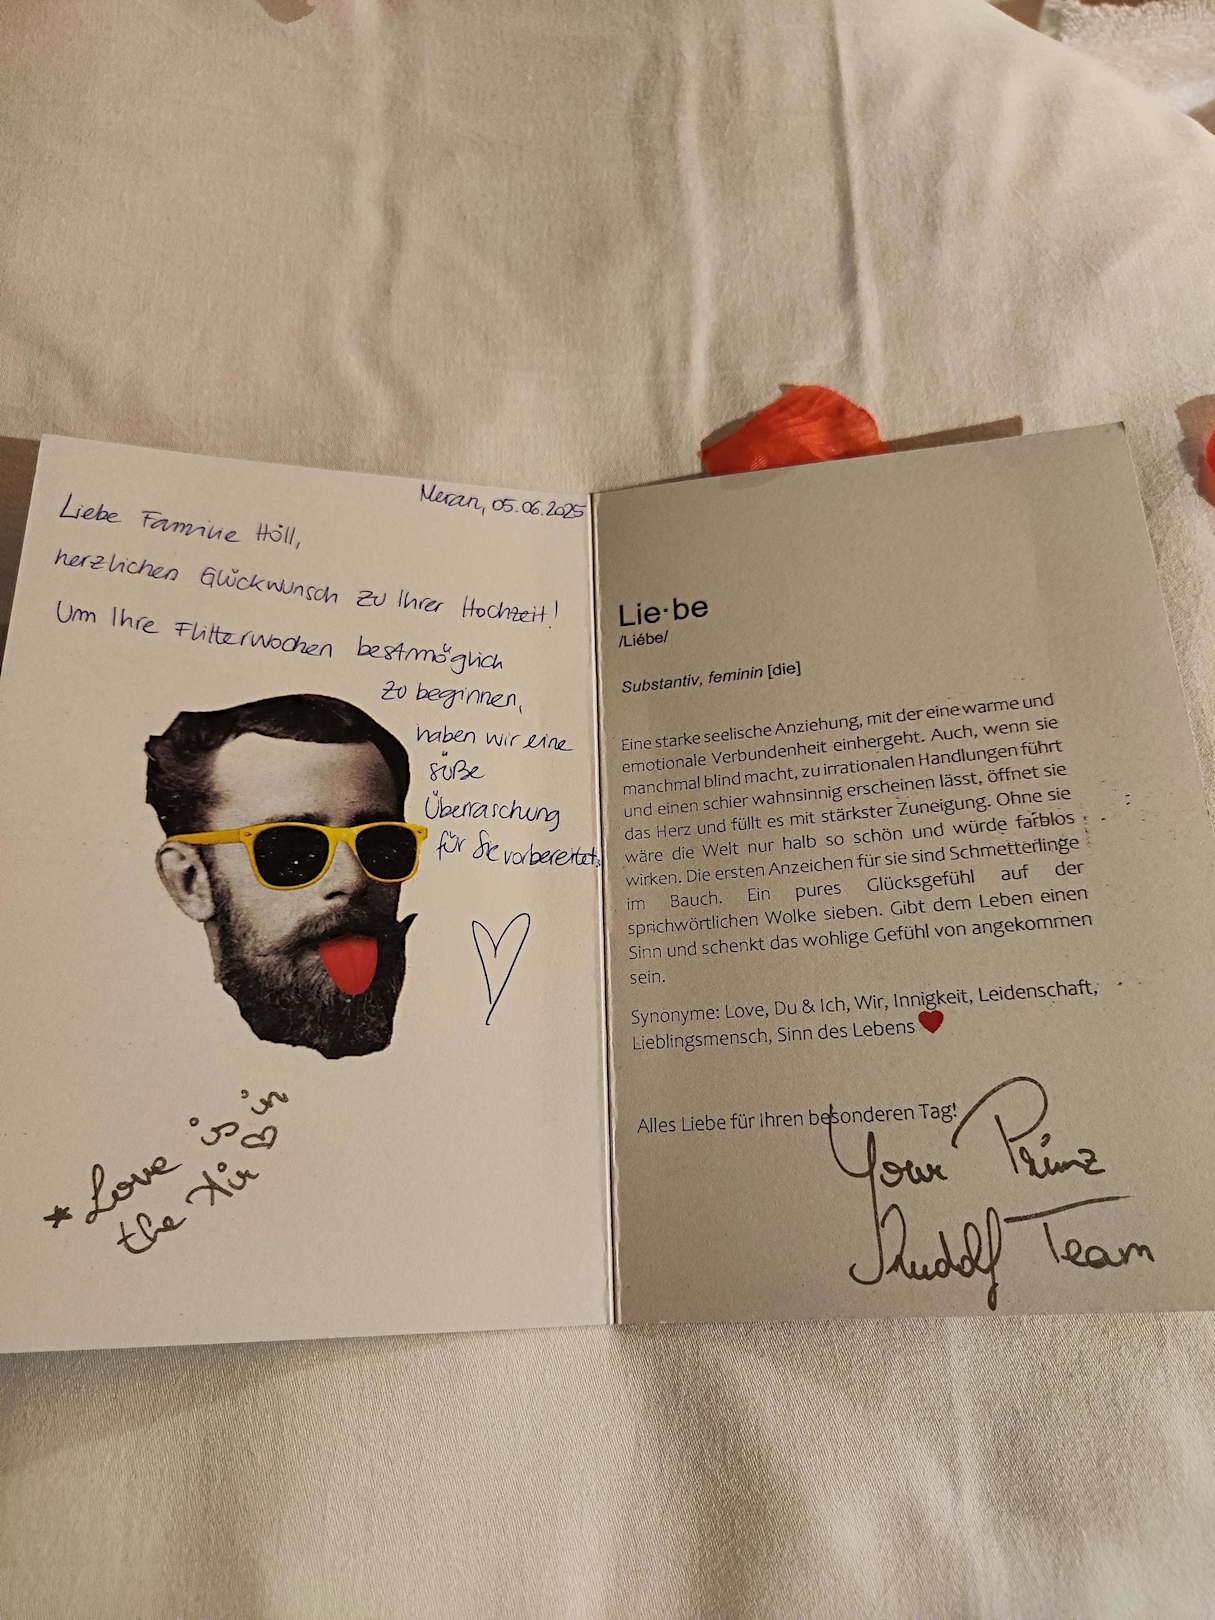 Meran, 05.06.2025
Liebe Familie Höll,
herzlichen Glückwunsch zu Ihrer Hochzeit!
Um Ihre Flitterwochen bestmöglich
zu beginnen,
haben wir eine
süße
Überraschung
für Sie vorbereitet.
* Love is in
the Air
Lie·be
/Liébe/
Substantiv, feminin [die]
Eine starke seelische Anziehung, mit der eine warme und
emotionale Verbundenheit einhergeht. Auch, wenn sie
manchmal blind macht, zu irrationalen Handlungen führt
und einen schier wahnsinnig erscheinen lässt, öffnet sie
das Herz und füllt es mit stärkster Zuneigung. Ohne sie
wäre die Welt nur halb so schön und würde farblos
wirken. Die ersten Anzeichen für sie sind Schmetterlinge
im Bauch. Ein pures Glücksgefühl auf der
sprichwörtlichen Wolke sieben. Gibt dem Leben einen
Sinn und schenkt das wohlige Gefühl von angekommen
sein.
Synonyme: Love, Du & Ich, Wir, Innigkeit, Leidenschaft,
Lieblingsmensch, Sinn des Lebens ❤
Alles Liebe für Ihren besonderen Tag!
Your Prinz
Rudolf Team